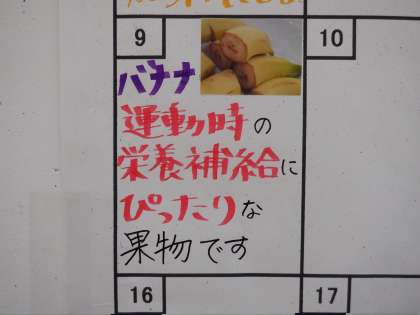 9
10
バナナ
運動時の
栄養補給に
ぴったりな
果物です
16
17